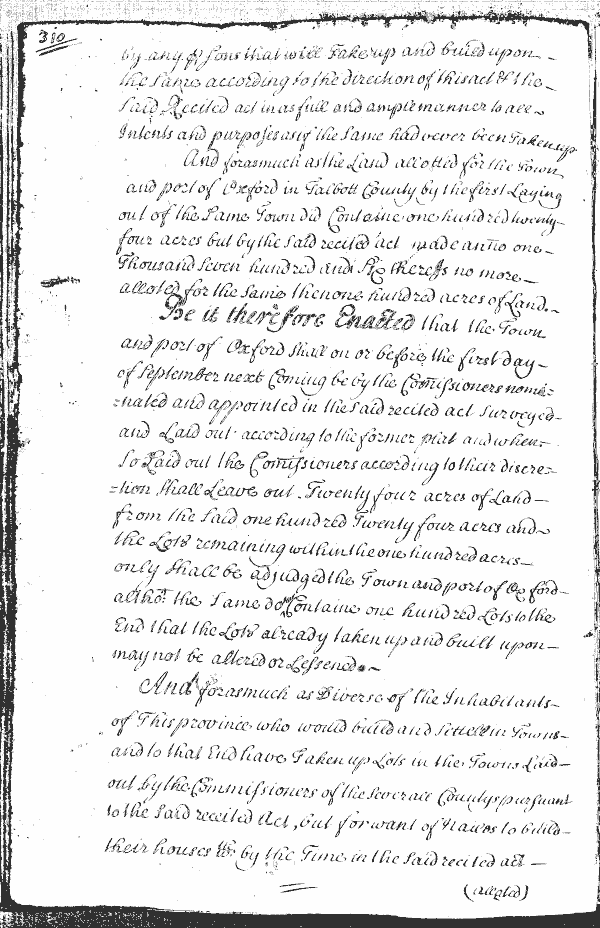 380
by any psons that will Take up and build upon
the Same according to the direction of this act & the
Said Recited act in as full and ample manner to all
Intents and purposes as if the Same had never been Taken up
And forasmuch as the Land allotted for the Town
and port of Oxford in Talbott County by the first Laying
out of the Same Town did Containe one hundred twenty
four acres but by the Said recited act made anno one
Thousand Seven hundred and Six there is no more
alloted for the Same then one hundred acres of Land.
Be it therefore Enacted that the Town
and port of Oxford Shall on or before the first day
of September next Coming be by the Comissioners nomi=
=nated and appointed in the Said recited act Surveyed
and Laid out according to the former plat and when
So Laid out the Comissioners according to their discre=
=tion Shall Leave out Twenty four acres of Land
from the Said one hundred Twenty four acres and
the Lots remaining within the one hundred acres
only Shall be adjudged the Town and port of Oxford
altho: the Same do Containe one hundred Lots to the
End that the Lots already taken up and built upon
may not be altered or Lessened.
And forasmuch as Diverse of the Inhabitants
of This province who would build and Settle in Towns
and to that End have Taken up Lots in the Towns Laid
out by the Commissioners of the Severall Countys pursuant
to the Said recited Act, but for want of Nailes to build
their houses by the Time in the Said recited act
(alloted)